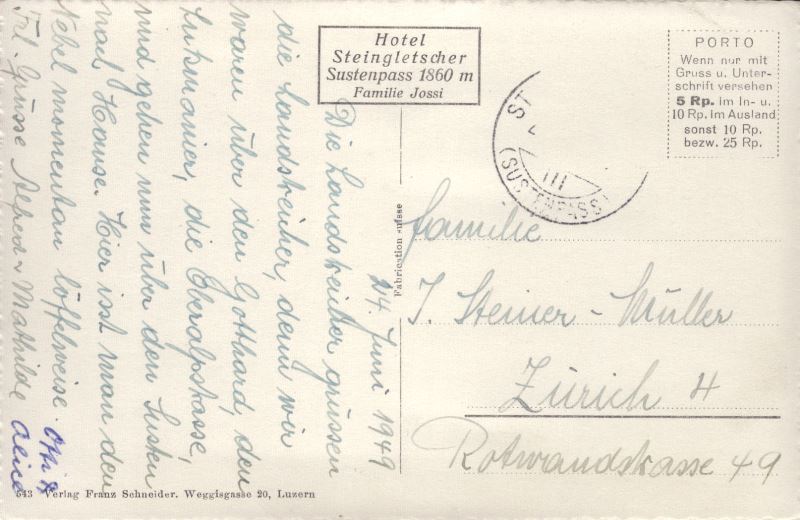 Hotel
Steingletscher
Sustenpass 1860 m
Familie Jossi
PORTO
Wenn nur mit
Gruss u. Unter-
schrift versehen
5 Rp. im In- u.
10 Rp. im Ausland
sonst 10 Rp.
bezw. 25 Rp.
(SUSTENPASS)
III
24. Juni 1949
Die Landstreicher grüssen
die Landstreicher, denn wir
waren über den Gotthard, den
Lukmanier, die
und gehen nun über den Susten
nach Hause. Hier isst man den
Nebel momentan löffelweise.
Frl. Grüsse Alfred & Mathilde
Alice
Fabrication suisse
Familie
J. Steiner-Müller
Zürich 4
Rotwandstrasse 49
543 Verlag Franz Schneider. Weggisgasse 20, Luzern